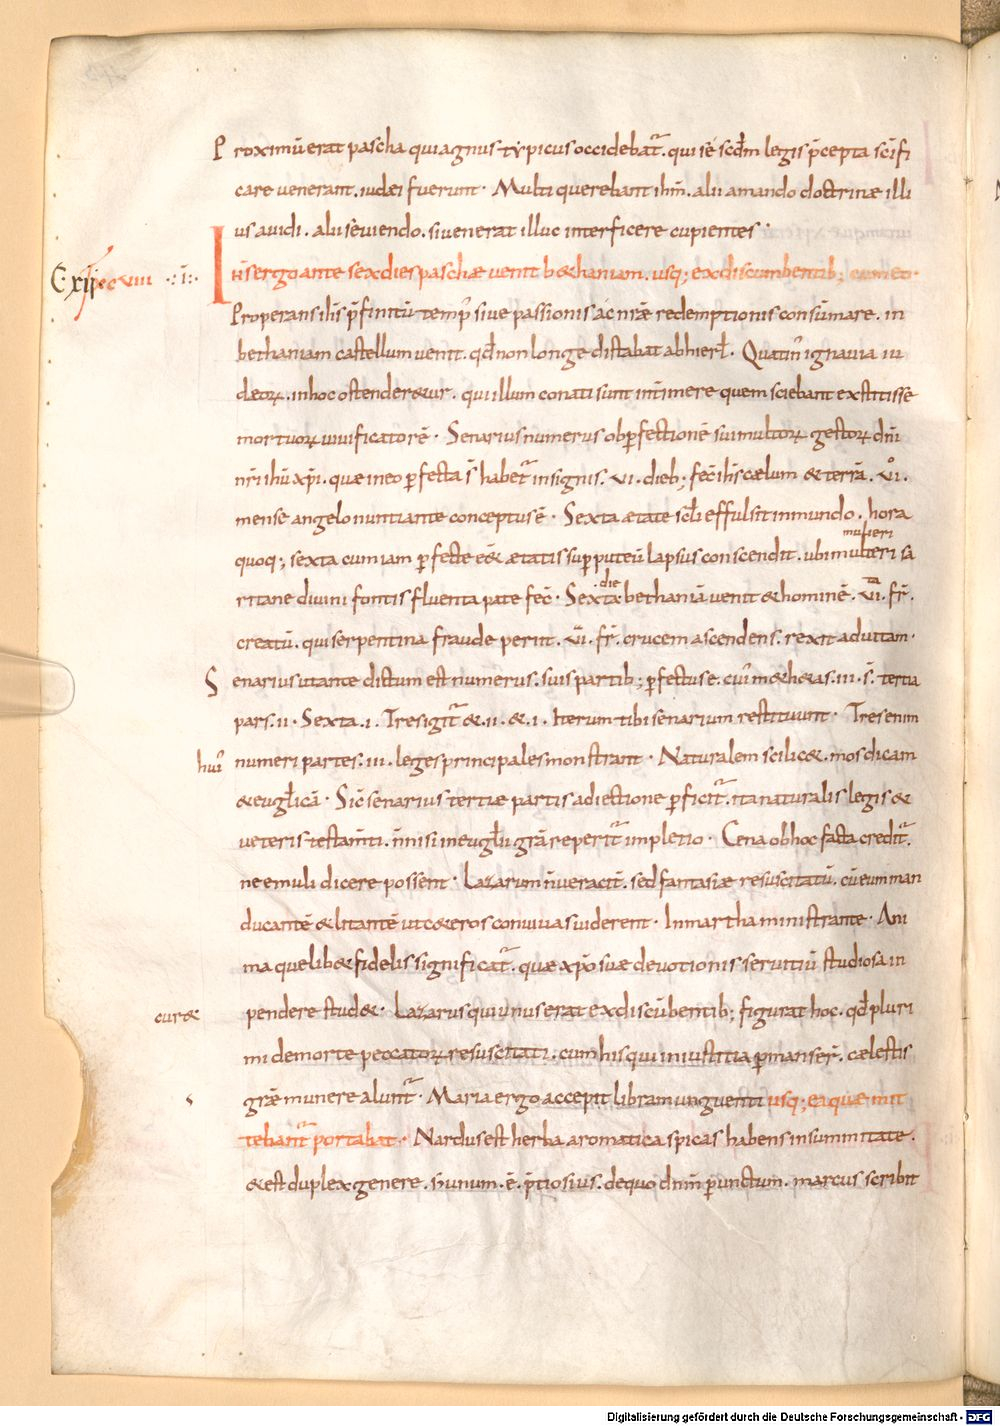 Proximū erat pascha quia agnus typicus occidebat̄. qui iē scđm legis p̄cepta scīfi
care venerant. iudæi fuerunt. Multi querebant ihm̄. alii amando doctrinæ illi
us avidi. alii seviendo. si venerat illuc interficere cupientes :
C·xii ·i·
Ihs ergo ante sex dies paschæ venit b&haniam. usq; ex discumbentib; cum eo.
Properans ih̄s p̄finitū temp̄ sive passionis ac nr̄æ redemptionis consūmare. in
bethaniam castellum venit. qđ non longe distabat ab hierł. Quatin̄ ignavia iu
deoꝝ. in hoc ostender&ur. qui illum conati sunt interimere quem sciebant extitisse
mortuoꝝ vivificatorē. Senarius numerus ob p̄fectionē sui multoꝝ gestoꝝ dn̄i
nr̄i ihū xp̄i. quæ in eo p̄fecta s̄ habet̄ insignis. VI. dieb; fec̄ ih̄s cælum & terrā. VIº.
mense angelo nuntiante conceptus ē. Sexta ætate scłi effulsit in mundo. hora
quoq; sexta cum iam p̄fecte ēē& ætatis sup̄ puteū lapsus conscendit. ubi mulieri sa
mulieri
ritane divini fontis fluenta pate fec̄. Sexta die bethaniā venit & hominē. VI.a fr̄.
creatū. qui serpentina fraude periit. VI. fr̄. crucem ascendens. rexit ad vitam.
Senarius ut ante dictum est numerus. suis partib; p̄fectus e. cui m&h&as. III. s̄. tertia
pars. II. Sexta. I. Tres igit̄ & II. & I. Iterum tibi senarium restituunt. Tres enim
hui᾽
numeri partes. III. leges principales monstrant. Naturalem scilic&. mosaicam
& evgłicā. Sic̄ senarius tertiæ partis adiectione p̄ficit̄. ita naturalis legis &
veteris testam̄ti. n̄ nisi in evgłii grā reperit̄ impletio. Cena ob hoc facta credit̄.
ne emuli dicere possent. Lazarum n̄ veracit̄. sed fantasiæ resuscitatū. cū eum man
ducantē & litantē ut c&eros convivas viderent. In martha ministrante. Ani
ma quelib& fidelis significat̄. quæ xp̄o suæ devotionis servitiū studiosa in
curæ
pendere stud&. Lazarus qui unus erat ex discūbentib; figurat hoc. qđ pluri
mi de morte peccatoꝝ resuscitati. cum his qui in iustitia p̄manser̄. cælestis
grāe munere alunt̄. Maria ergo accepit libram unguenti usq; ea quæ mit
tebant̄ portabat. Nardus est herba aromatica spicas habens in summitate.
& est duplex genere. s; unum. ē. p̄tiosius. de quo dn̄m p̄unctum. marcus scribit
Digitalisierung gefördert durch die Deutsche Forschungsgemeinschaft - DFG